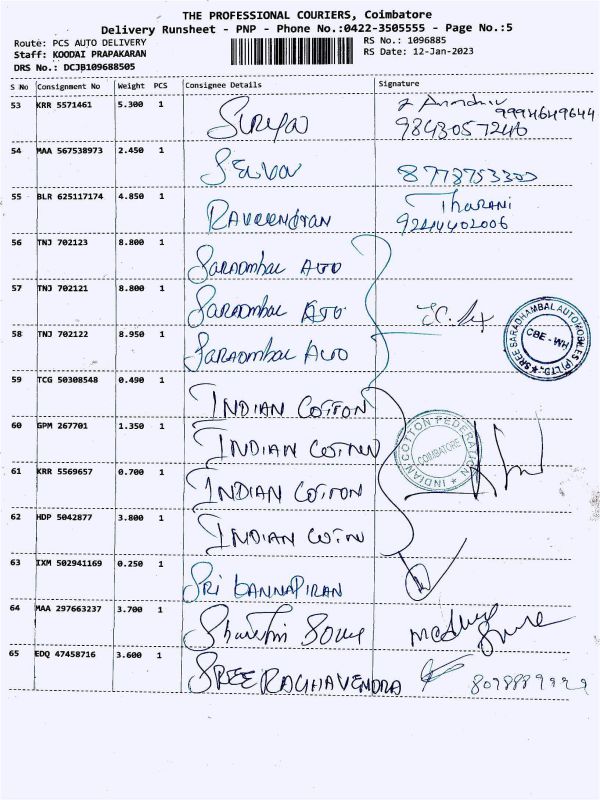 THE PROFESSIONAL COURIERS, Coimbatore
Delivery Runsheet - PNP - Phone No.:0422-3505555 - Page No.:5
Route: PCS AUTO DELIVERY RS No.: 1096885
Staff: KOODAI PRAPAKARAN RS Date: 12-Jan-2023
DRS No.: DCJB109688505
S No Consignment No Weight PCS Consignee Details Signature
53 KRR 5571461 5.300 1 Surya 9994649644
9843057246
54 MAA 567538973 2.450 1 Selva 8778753303
55 BLR 625117174 4.850 1 RAVEENDRAN Tharani
9244402006
56 TNJ 702123 8.800 1 Saradmbal Auto
57 TNJ 702121 8.800 1 Saradmbal Auto
58 TNJ 702122 8.950 1 Saradmbal Auto
SREE SARADHAMBAL AUTOMOBILES (P) LTD.
CBE - WH
59 TCG 50308548 0.490 1 INDIAN COTTON
60 GPM 267701 1.350 1 INDIAN COTTON
INDIAN COTTON FEDERATION
COIMBATORE
61 KRR 5569657 0.700 1 INDIAN COTTON
62 HDP 5042877 3.800 1 INDIAN COTN
63 IXM 502941169 0.250 1 SRI KANNAPIRAN
64 MAA 297663237 3.700 1
65 EDQ 47458716 3.600 1 SREE RAGHAVENDRA